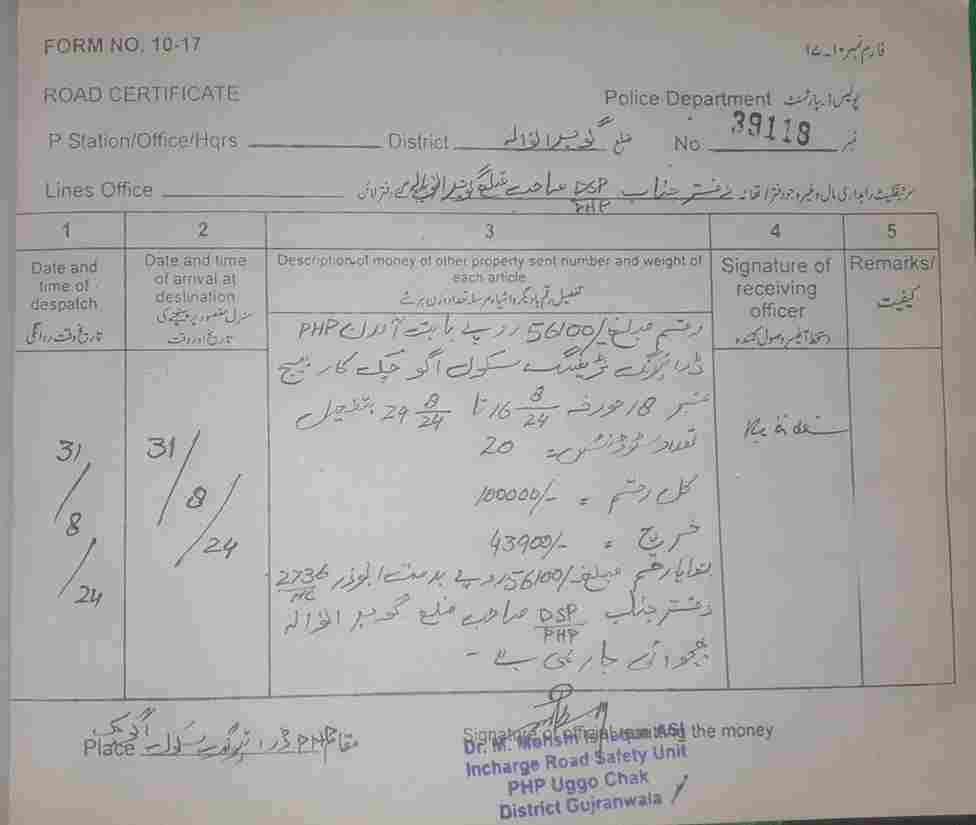 FORM NO. 10-17 فارم نمبر ۱۰-۱۷
ROAD CERTIFICATE
Police Department پولیس ڈیپارٹمنٹ
P Station/Office/Hqrs District ضلع گوجرانوالہ No 39118 نمبر
Lines Office دفتر جناب DSP/PHP صاحب ضلع گوجرانوالہ
1 2 3 4 5
Date and time of despatch
تاریخ وقت روانگی
Date and time of arrival at destination
منزل مقصود پر پہنچنے کی تاریخ اور وقت
Description of money of other property sent number and weight of each article
Signature of receiving officer
Remarks/
کیفیت
31/8/24
31/8/24
رقم مبلغ 56100/- روپے بابت آمدن PHP
ڈرائیونگ ٹریننگ سکول اگو چک کار بیج
نمبر 18 مورخہ 16 8/24 تا 29 8/24 بتفصیل
تعداد سٹوڈنٹس = 20
کل رقم = 100000/-
خرچ = 43900/-
بقایا رقم مبلغ 56100/- روپے بدست ابوذر 2736/HC
دفتر جناب DSP/PHP صاحب ضلع گوجرانوالہ
بھجوائی جا رہی ہے -
Place مقام PHP ڈرائیونگ سکول اگو چک
Signature of official remitting the money
Dr. M. Mohsin ASI
Incharge Road Safety Unit
PHP Uggo Chak
District Gujranwala